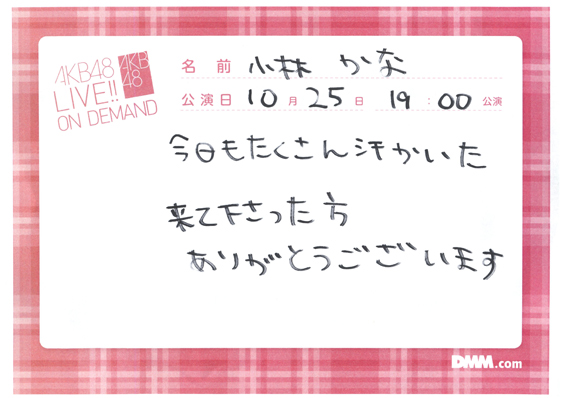 AKB48
LIVE!!
ON DEMAND
AKB
48
名 前 小林 かな
公演日 10月 25日 19:00 公演
今日もたくさん汗かいた
来て下さった方
ありがとうございます
DMM.com